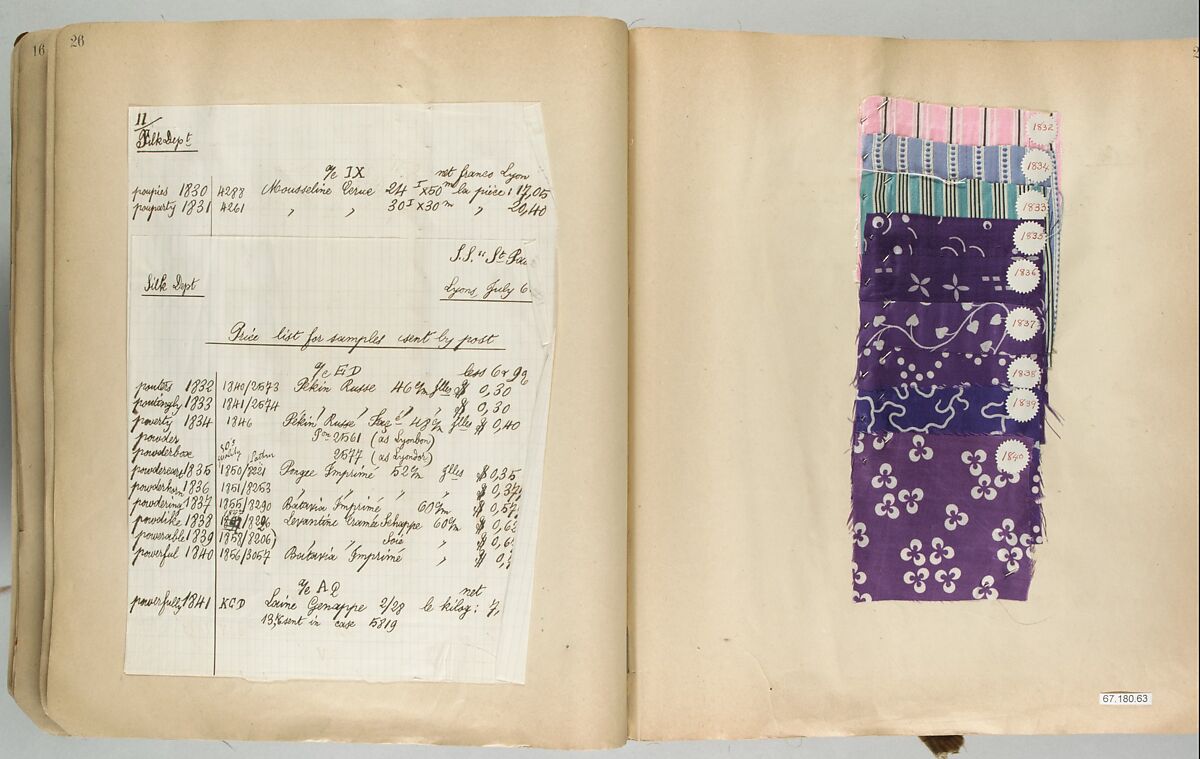 16
26
11
Silk Dept
% IX net francs Lyon
poupies 1830 4288 Mousseline Ecrue 24 I x50 m la pièce : 17,05
pouparty 1831 4261 , , 30 I x30 m , 20,40
S.S. "St Pau
Silk Dept
Lyons, July 6
Price list for samples sent by post
% E D less 6 & 9%
1832 1840/2573 Pékin Russe 46 c/m flles $ 0,30
poutingly 1833 1841/2574 " " " " $ 0,30
poverty 1834 1846 Pékin Russe 48 c/m flles $ 0,40
powder 2561 (as Lyonbon)
powderbox 2577 (as Lyondor)
1835 1850/3221 Pongee Imprimé 52 c/m flles $ 0,35
powderhorn 1836 1851/3253 " " " $ 0,37
powdering 1837 1855/3290 Batavia Imprimé 60 c/m $ 0,57
powdike 1838 Levantine Tramée Schappe 60 c/m $ 0,6
powerable 1839 1857/3206 " " Soie , $ 0,6
powerful 1840 1856/3057 Batavia Imprimé , $ 0,
% A Q net
1841 KCD Laine Genappe 2/28 le kilog:
sent in case 5819
1832
1834
1833
1835
1836
1837
1838
1839
1840
67.180.63